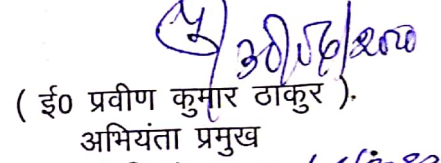 30/06/2020
( ई0 प्रवीण कुमार ठाकुर ).
अभियंता प्रमुख